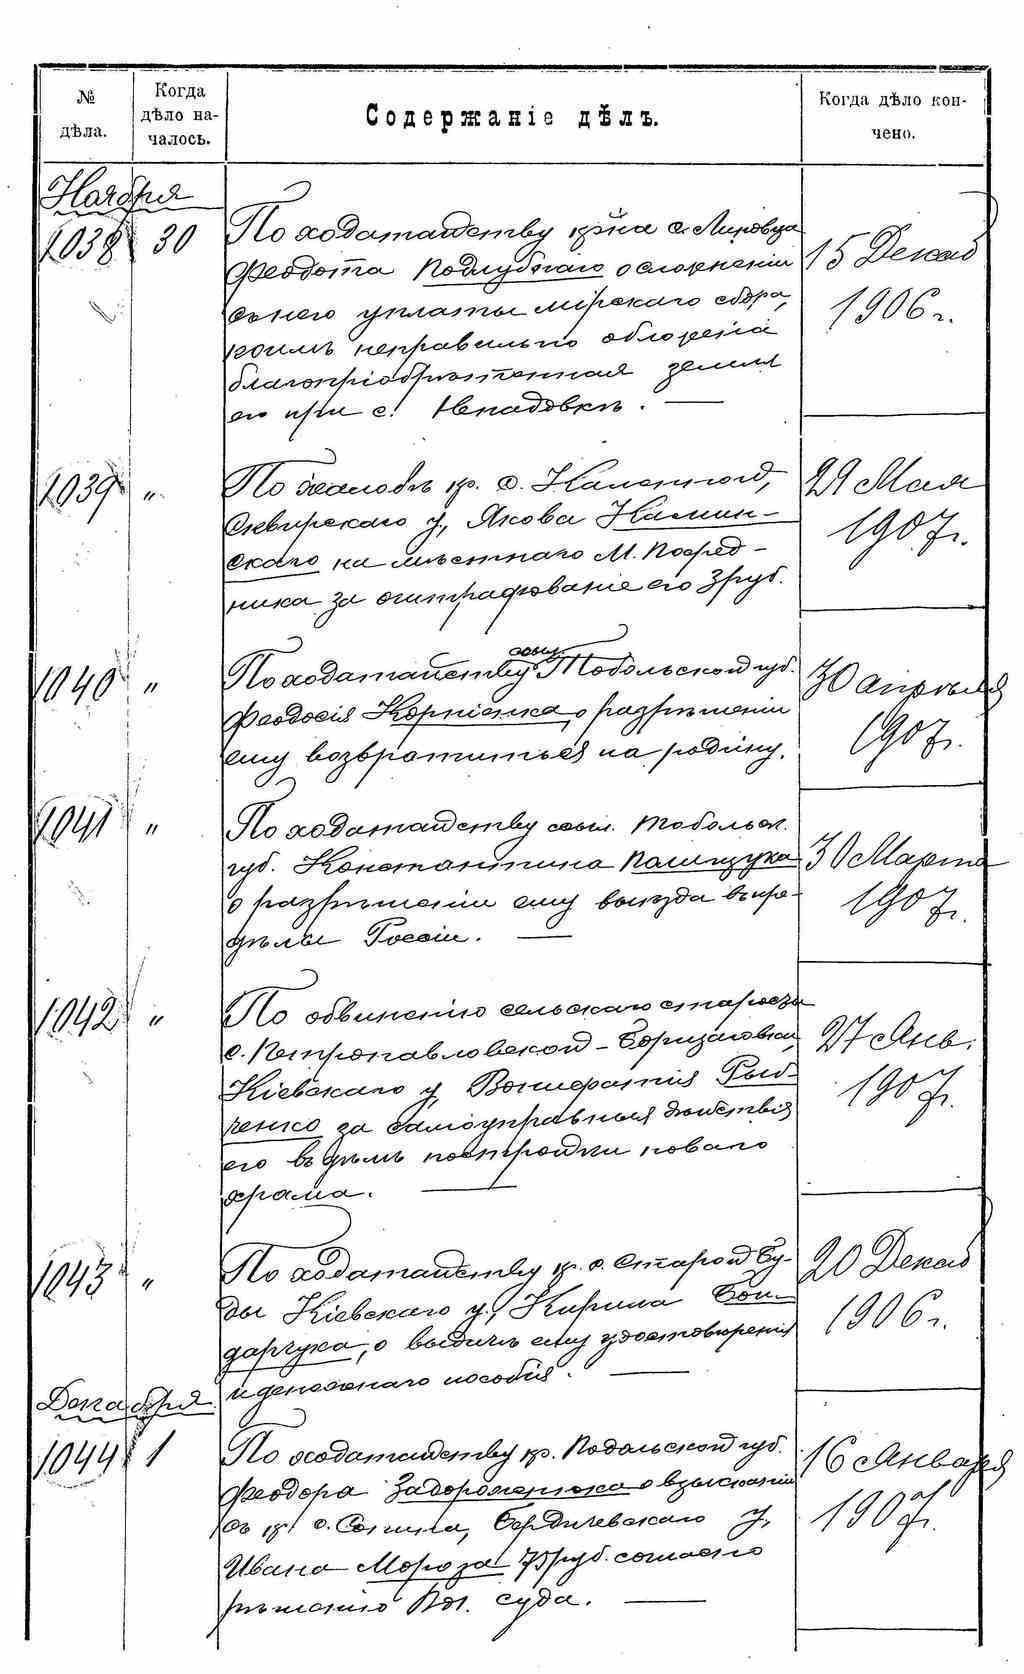 № дѣла.
Когда дѣло началось.
Содержаніе дѣлъ.
Когда дѣло кончено.
Ноября
1038 30 По ходатайству кр-на с. Липовца 15 Декаб
Феодота Поддубнаго о сложеніи
съ него уплаты мірскаго сбора, 1906 г.
коимъ неправильно обложена
благопріобрѣтенная земля
его при с. Ненадовкѣ. —
1039 " По жалобѣ кр. с. Каленной, 29 Мая
Сквирскаго у, Якова Камин- 1907 г.
скаго на мѣстнаго М. Посред-
ника за оштрафованіе его 3 руб.
1040 " По ходатайству ссыл. Тобольской губ. 30 апрѣля
Феодосія Корніенка, о разрѣшеніи 1907 г.
ему возвратиться на родину.
1041 " По ходатайству ссыл. Тобольск.
губ. Константина Полищука 30 Марта
о разрѣшеніи ему выѣзда въ пре- 1907 г.
дѣлы Россіи. —
1042 " По обвинению сельскаго старосты
с. Петропавловской-Борщаговки, 27 Янв.
Кіевскаго у, Вонифатія Рыб- 1907 г.
ченко за самоуправныя дѣйствія
его въ дѣлѣ постройки новаго
храма. —
1043 " По ходатайству кр. с. Старой Бу- 20 Декаб
ды Кіевскаго у., Кирила Бон- 1906 г.
дарчука, о выдачѣ ему удостовѣренія
и денежнаго пособія. —
Декабря
1044 1 По ходатайству кр. Подольской губ. 16 Января
Феодора Задорожнюка о взысканіи
съ кр. с. Сопина, Бердичевскаго у, 1907 г.
Ивана Мороза 75 руб. согласно
рѣшенію Вол. суда. —